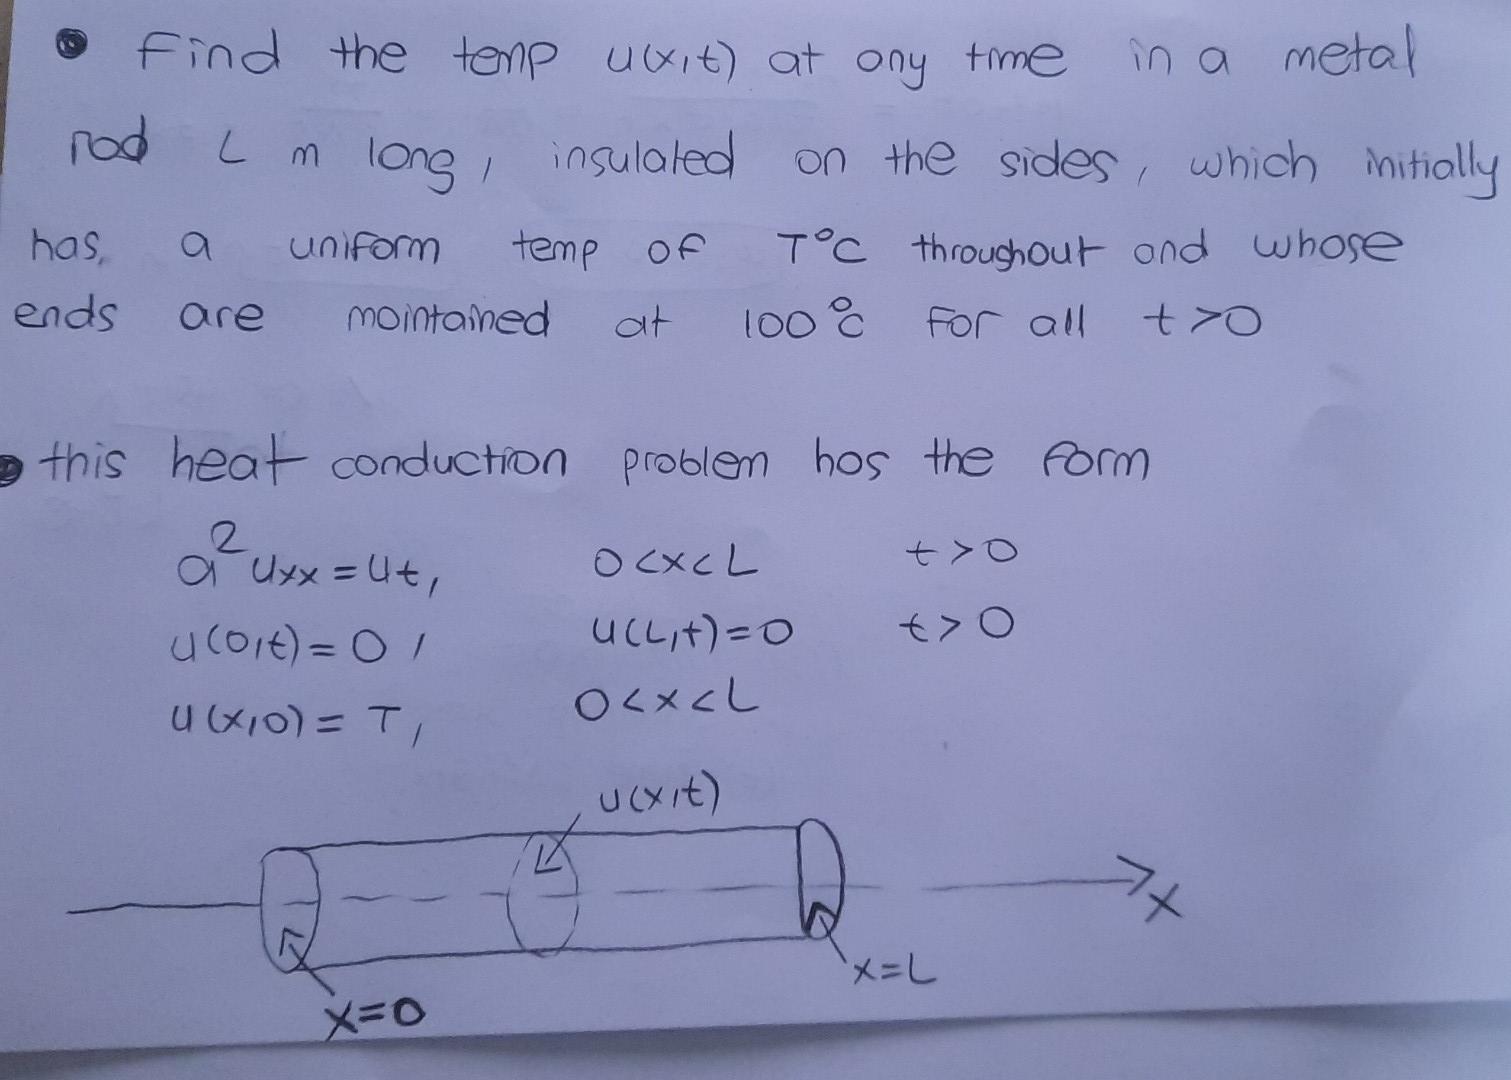 • Find the temp u(x,t) at any time in a metal
rod L m long, insulated on the sides, which initially
has, a uniform temp of T°C throughout and whose
ends are maintained at 100°C for all t>0
• this heat conduction problem has the form
a²uxx = ut, 0<x<L t>0
u(0,t)=0, u(L,t)=0 t>0
u(x,0)=T, 0<x<L
u(x,t)
x
x=L
x=0